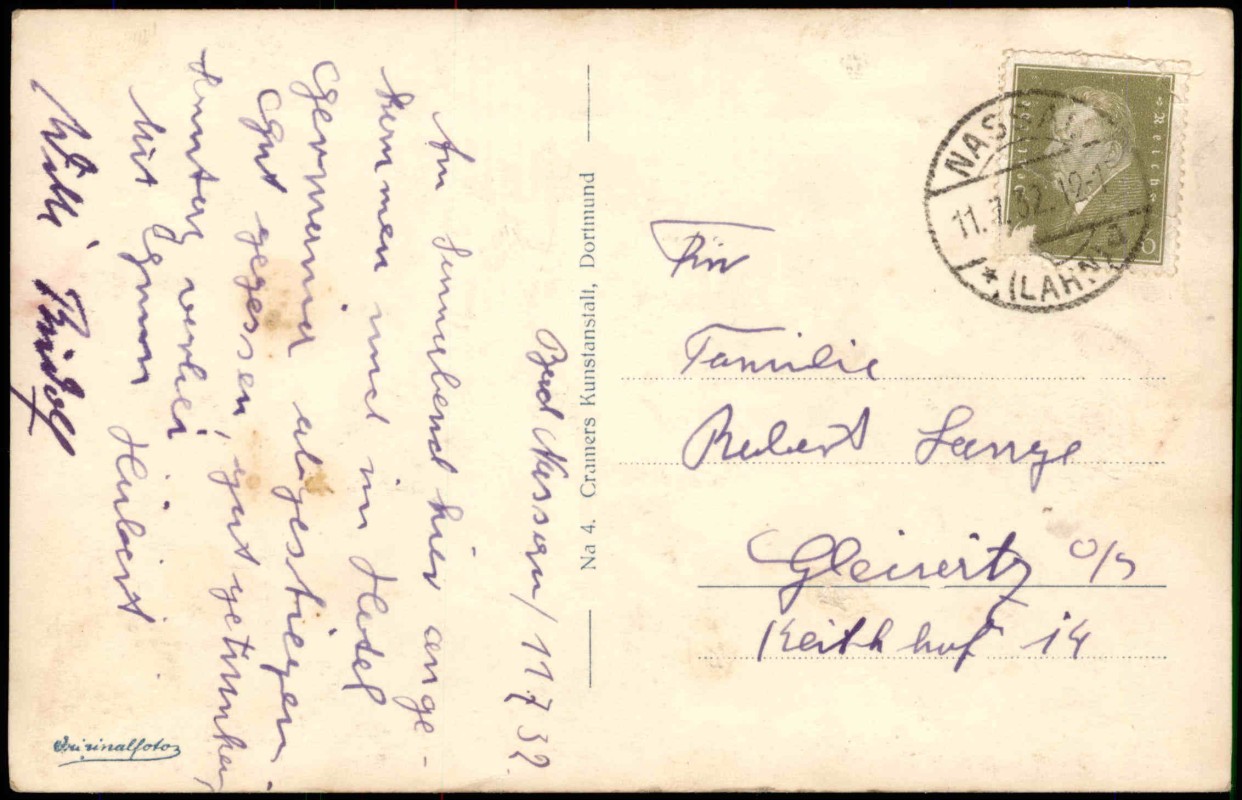 Bad Nassau / 11 7 32.
Am Sonnabend hier ange-
kommen und im Hotel
Germania abgestiegen.
Gut gegessen, gut getrunken,
vorbei
Mit Gruss Hubert
Willi
Originalfoto
Na 4. Cramers Kunstanstalt, Dortmund
NASSAU
11.7.32.12-1
* (LAHN) a
Deutsches Reich
6
An
Familie
Robert Lange
Gleiwitz O/S
Keithhof 14